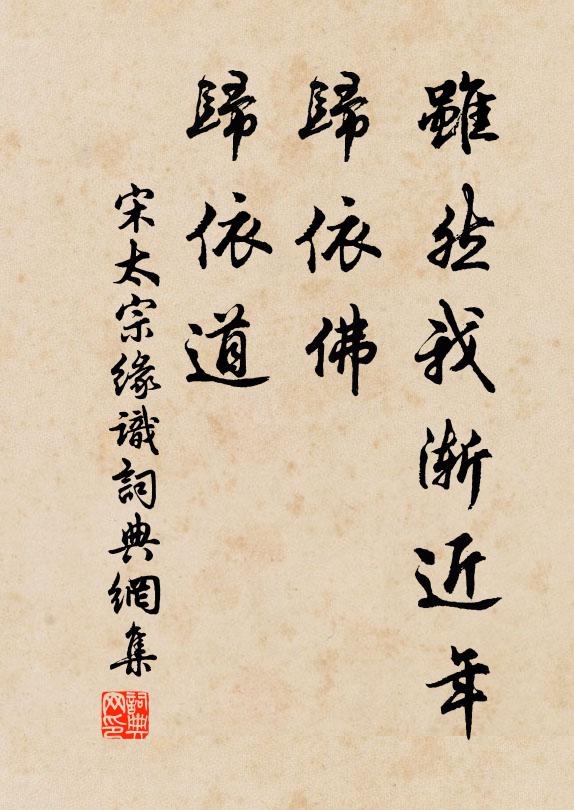 雖然我漸近年
歸依佛
歸依道
宋太宗緣識詞典網集
詞典網印